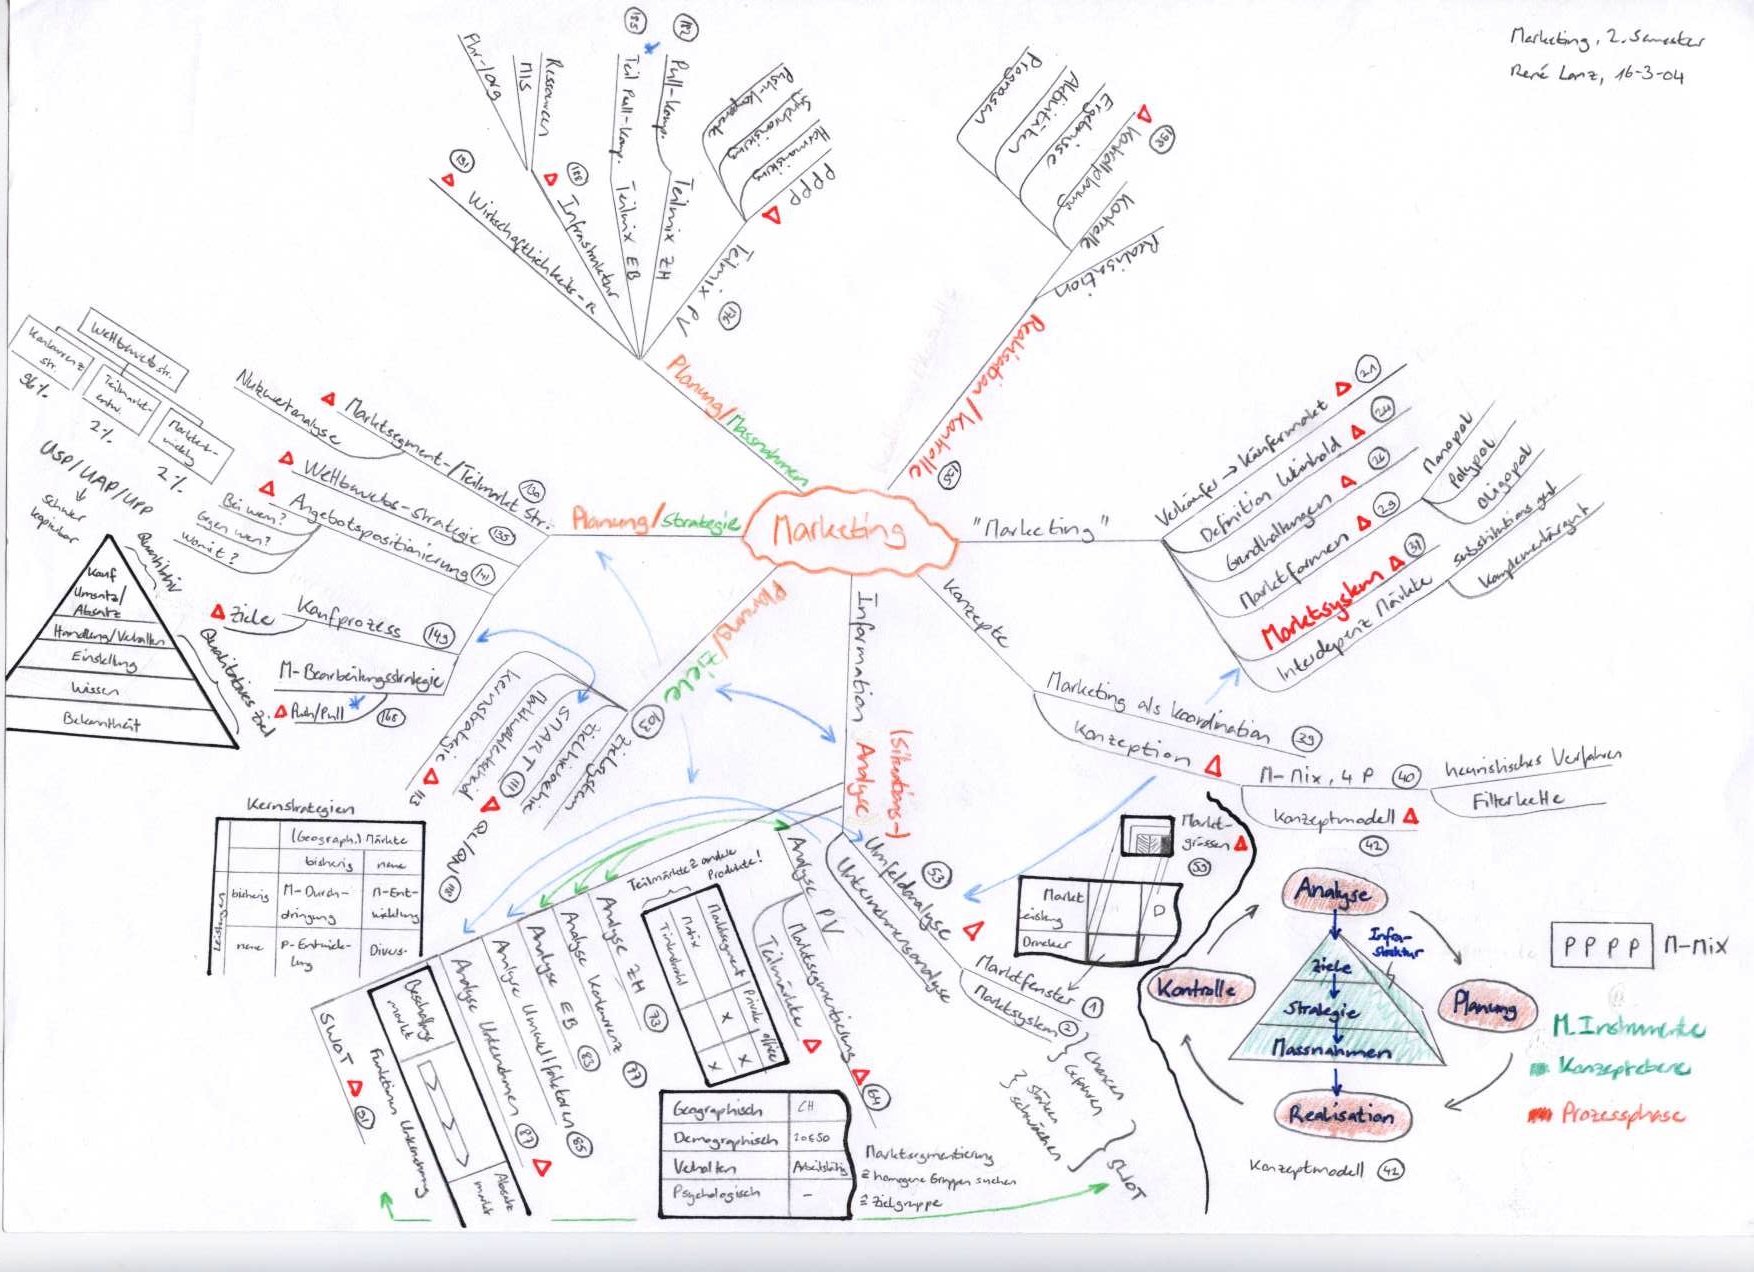 Marketing, 2. Semester
René Lanz, 16-3-04
Marketing
Planung/Massnahmen
Wirtschaftlichkeits-R
191
Infrastruktur
188
Fhr-/org
MIS
Ressourcen
Teilmix EB
Teil Pull-Komp.
185
Teilmix ZH
Pull-Komp.
182
Teilmix PV
176
PPPP
Harmonisierung
Synchronisierung
Push-Komponente
Realisation/Kontrolle
195
Realisation
Kontrolle
Kontrollplanung
198
Ergebnisse
Aktivitäten
Prognosen
"Marketing"
Verkäufer → Käufermarkt
21
Definition Weinhold
24
Grundhaltungen
26
Marktformen
29
Monopol
Polypol
Oligopol
Marktsystem
31
Interdepenz Märkte
Substitutionsgut
Komplementärgut
Konzepte
Marketing als Koordination
39
Konzeption
M-Mix, 4 P
40
heuristisches Verfahren
Filterkette
Konzeptmodell
42
Planung/Strategie
Marktsegment-/Teilmarkt Str.
130
Nutzwertanalyse
Wettbewerbs-Strategie
135
Angebotspositionierung
141
Bei wem?
Gegen wen?
Womit?
Kaufprozess
149
Ziele
M-Bearbeitungsstrategie
Push/Pull
168
Wettbewerbstr.
Konkurrenz
str.
96%
Teilmarkt-
entw.
2%
Marktent-
wicklg
2%
USP/UAP/UPP
↓
schwer
kopierbar
Quantitativ
Kauf
Umsatz/
Absatz
Handlung/Verhalten
Einstellung
Wissen
Bekanntheit
Qualitatives Ziel
Planung/
Ziele
103
Zielsystem
Zielhierarchie
SMART
111
Kernstrategie
113
QL/QN
Kernstrategien
(Geograph.) Märkte
bisherig
neue
Leistungen
bisherig
M-Durch-
dringung
M-Ent-
wicklung
neue
P-Entwick-
lung
Divers-
Information
(Situations-)
Analyse
Umfeldanalyse
53
Unternehmensanalyse
Marktfenster
1
Marktsystem
2
} Chancen
} Gefahren
} Stärken
} Schwächen
} SWOT
Markt-
grössen
59
Markt
Leistung
D
Drucker
Analyse PV
Marktsegmentierung
64
Teilmärkte
Teilmärkte ≙ andere
Produkte!
Marktsegment
Privat
office
x
x
x
Analyse ZH
73
Analyse Konkurrenz
77
Analyse EB
83
Analyse Umweltfaktoren
85
Analyse Unternehmen
87
SWOT
91
Funktionen Unternehmung
Beschaffungs
markt
Absatz
markt
Geographisch
CH
Demographisch
20≤50
Verhalten
Arbeitstätig
Psychologisch
–
Marktsegmentierung
≙ homogene Gruppen suchen
≙ Zielgruppe
Analyse
Infra-
struktur
Ziele
Strategie
Massnahmen
Kontrolle
Planung
Realisation
Konzeptmodell
42
P P P P
M-Mix
M. Instrumente
Konzeptebene
Prozessphase